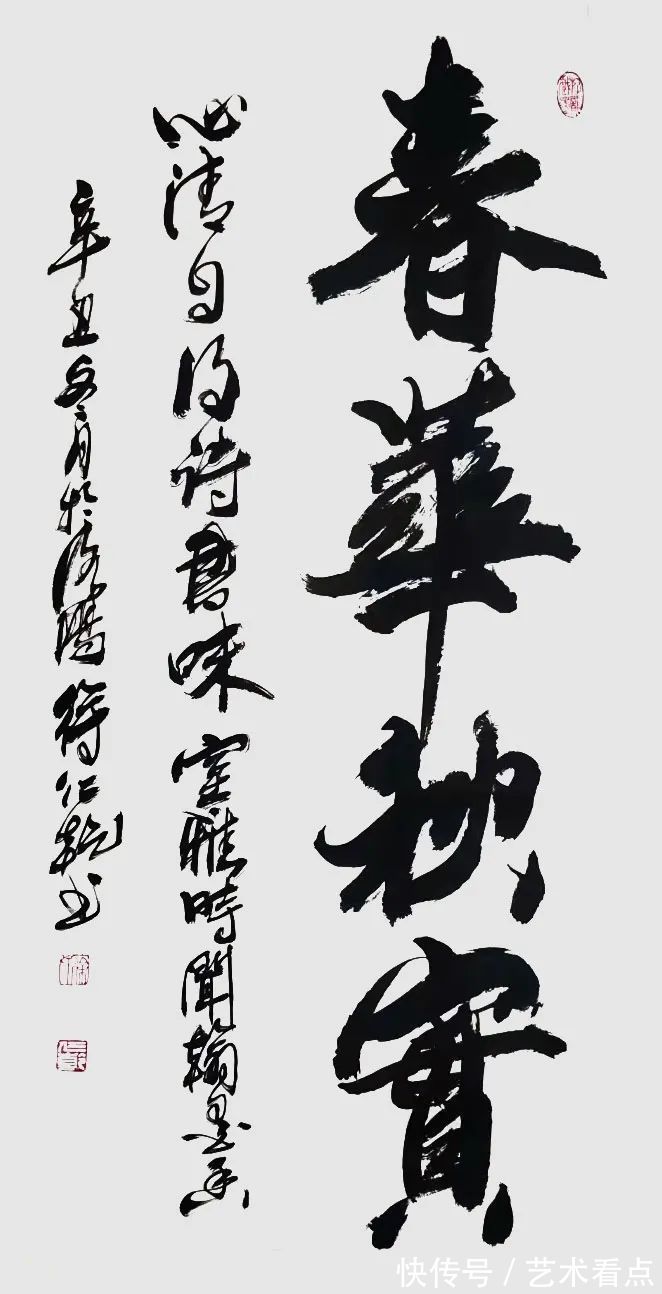 春華秋實
心清自得詩書味室雅時聞翰墨香
辛丑冬月於
仁乾书
快传号/艺术看点